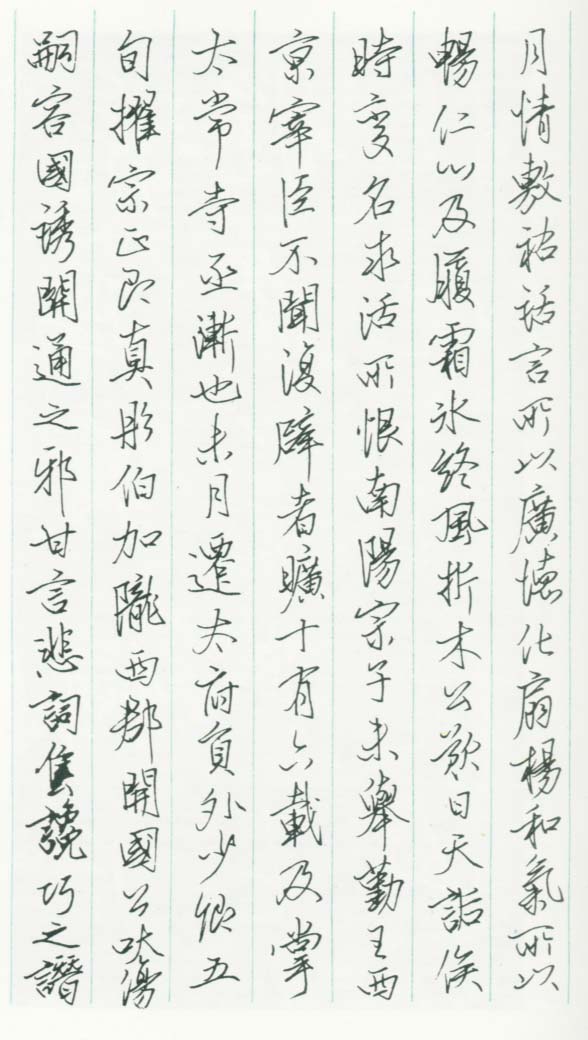 月情敷祐話言所以廣德化扇楊和氣所以
暢仁心及履霜氷終風折木公歎曰天詬俟
時变名求活所恨南陽宗子未舉勤王西
京宰臣不聞復辟者曠十有六載及掌
太常寺丞漸也未月遷太府員外少卿五
旬擢宗正即真彤伯加隴西郡開國公吠傷
嗣容國誘開通之邪甘言悲詞售讒巧之譖